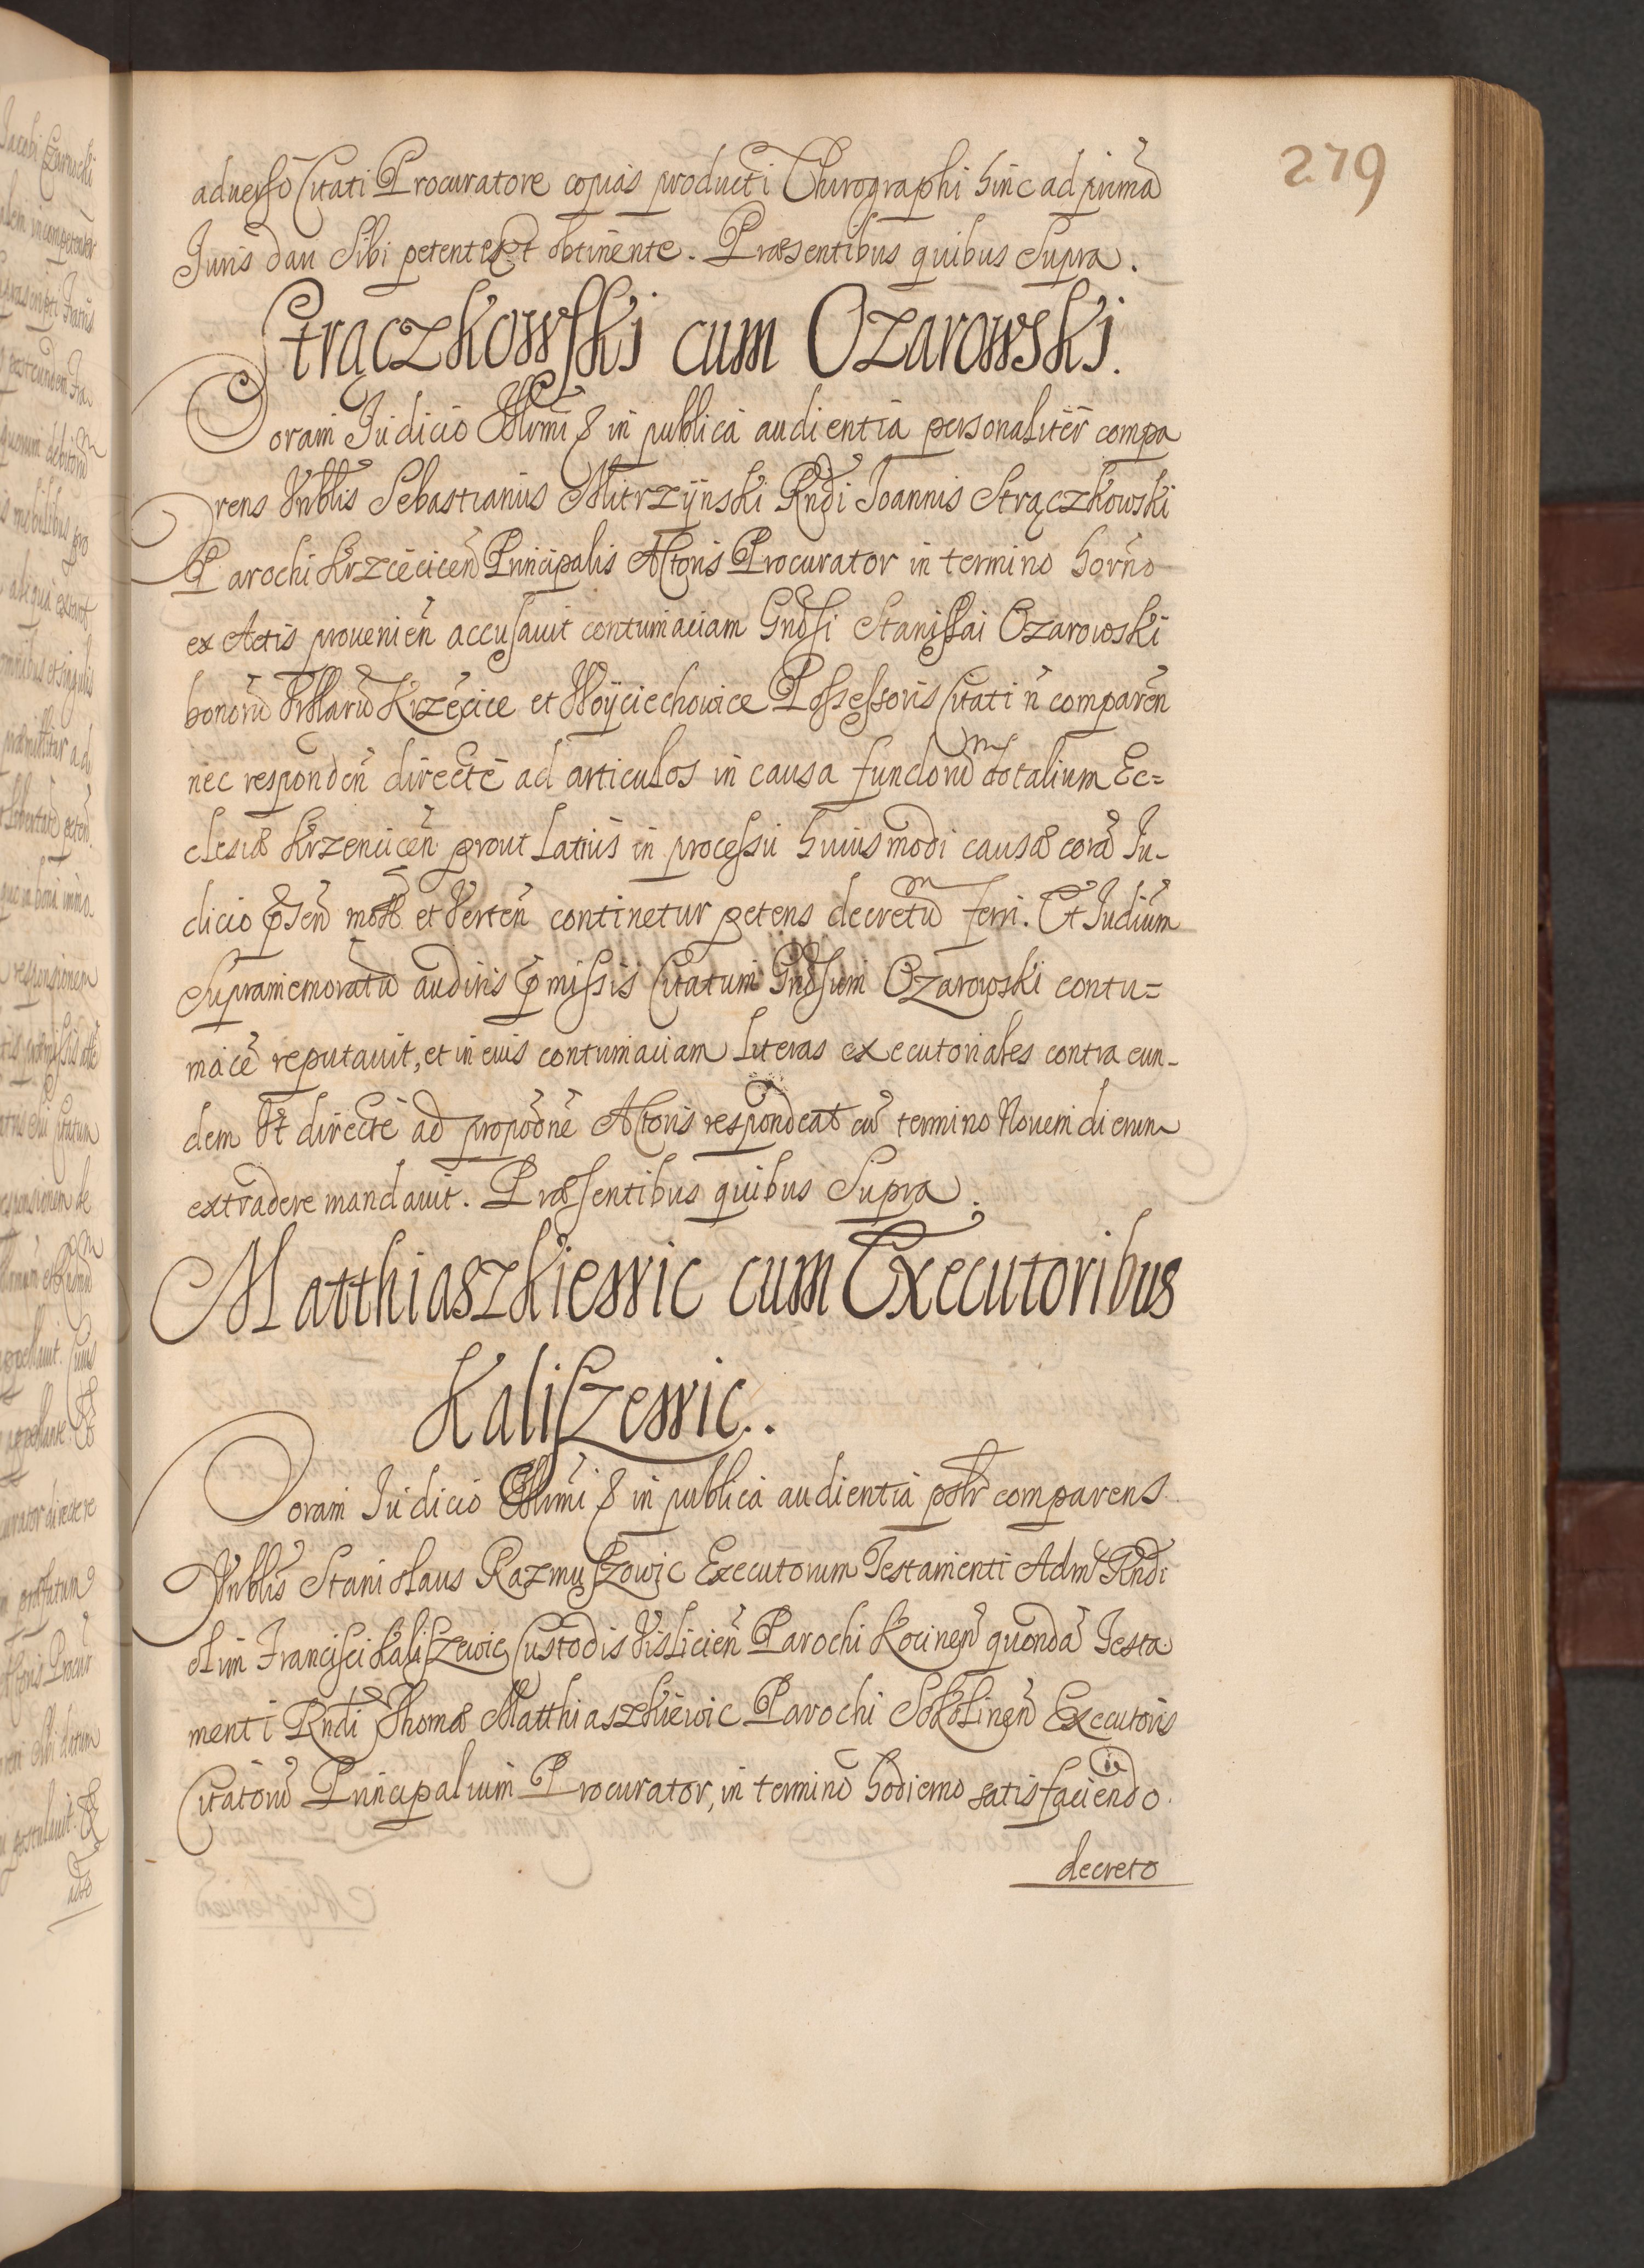 279
aduerso Citati Procuratore copias producti Chirographi hinc ad primā
Iuris dari Sibi petente et obtinente. Præsentibus quibus Supra.
Strączkowski cum Ozarowski.
Coram Iudicio Illmi & in publica audientia personaliter compa
rens Nobilis Sebastianus Mitrzynski Rndi Ioannis Strączkowski
Parochi Krzcecicen̄ Principalis Actoris Procurator in termino horno
ex Actis prouenien̄ accusauit contumaciam Gndsi Stanislai Ozarowski
bonorū Villarū Krzęcice et Woyciechowice Possessoris Citati n̄ comparen̄
nec responden̄ directe ad articulos in causa fundorū dotalium Ec=
clesiæ Krzencicen̄ prout Latius in processu huiusmodi causæ corā Iu-
dicio p̄sen̄ motæ et Verten̄ continetur petens decretū ferri. Et Iudium
Supramemoratū auditis p̄missis Citatum Gndsum Ozarowski contu=
macē reputauit, et in eius contumaciam Literas executoriales contra eun-
dem Vt directe ad propōōnē Actoris respondeat cū termino Nouem dierum
extradere mandauit. Præsentibus quibus Supra.
Matthiaszkiewic cum Executoribus
Kaliszewic..
Coram Iudicio Illmi & in publica audientia pslr comparens
Nobilis Stanislaus Razmuszowic Executorum Testamenti Adm Rndi
olim Francisci Kaliszewic Custodis Vislicien̄ Parochi Kocinen̄ quondā Testa
menti Rndi Thomæ Matthiaszkiewic Parochi Sokolinen̄ Executoris
Citatorū Principalium Procurator, in termino hodierno satisfaciendo
decreto